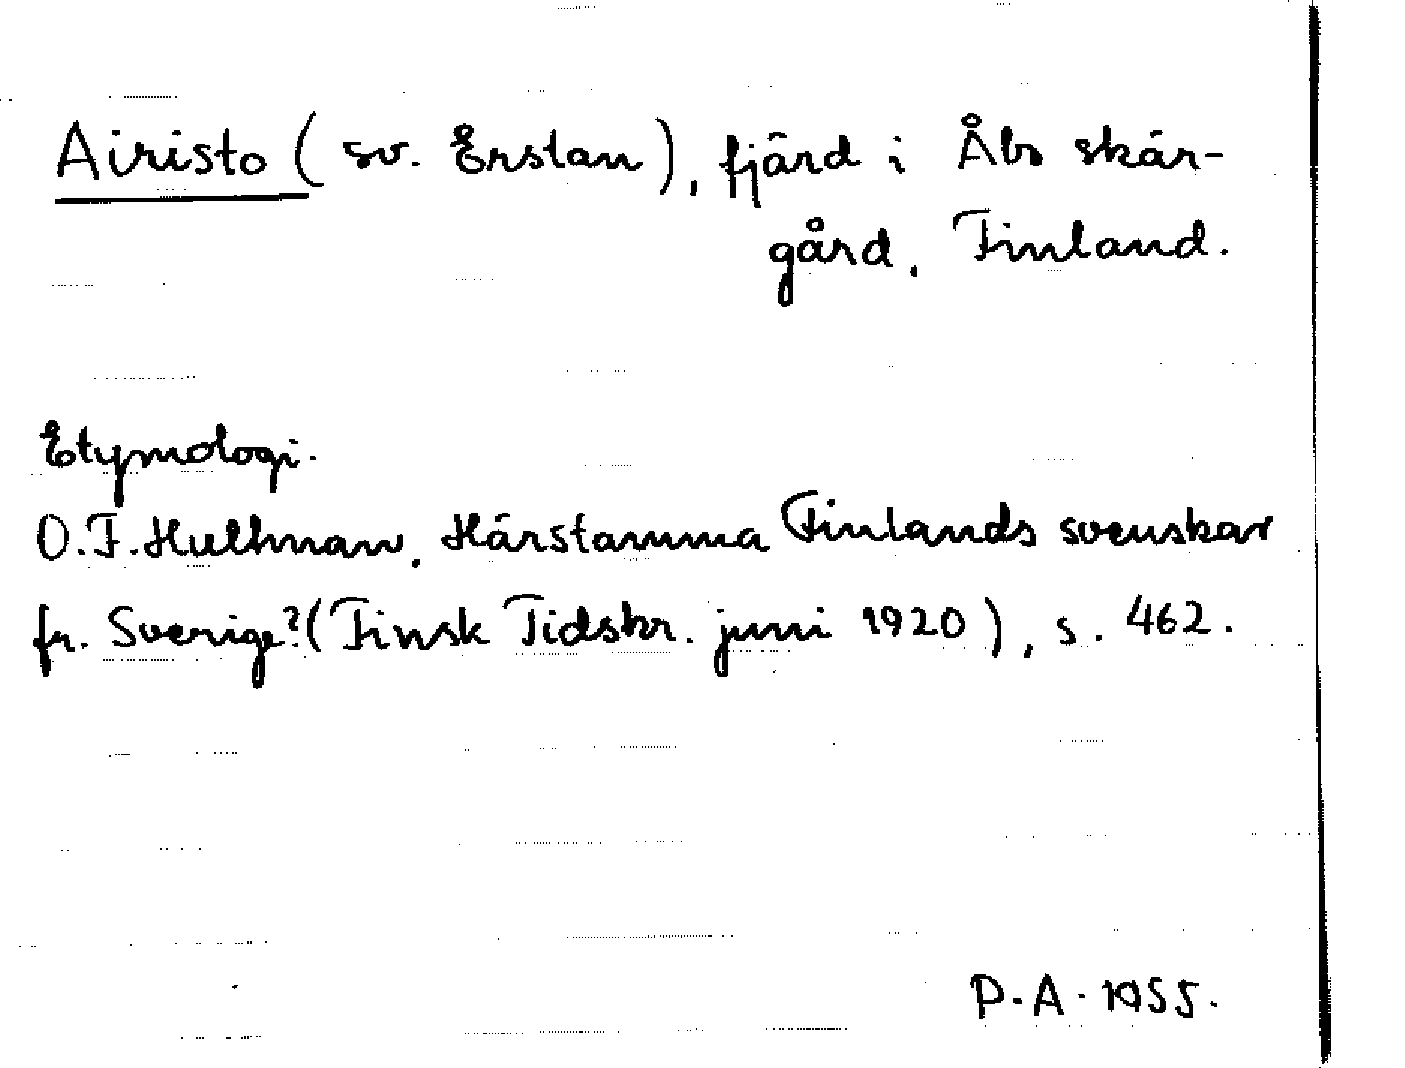 Airisto (sv. Erstan), fjärd i Åbo skär-
gård, Finland.
Etymologi.
O.F. Hultman, Härstamma Finlands svenskar
fr. Sverige? (Finsk Tidskr. juni 1920), s. 462.
P.A. 1955.